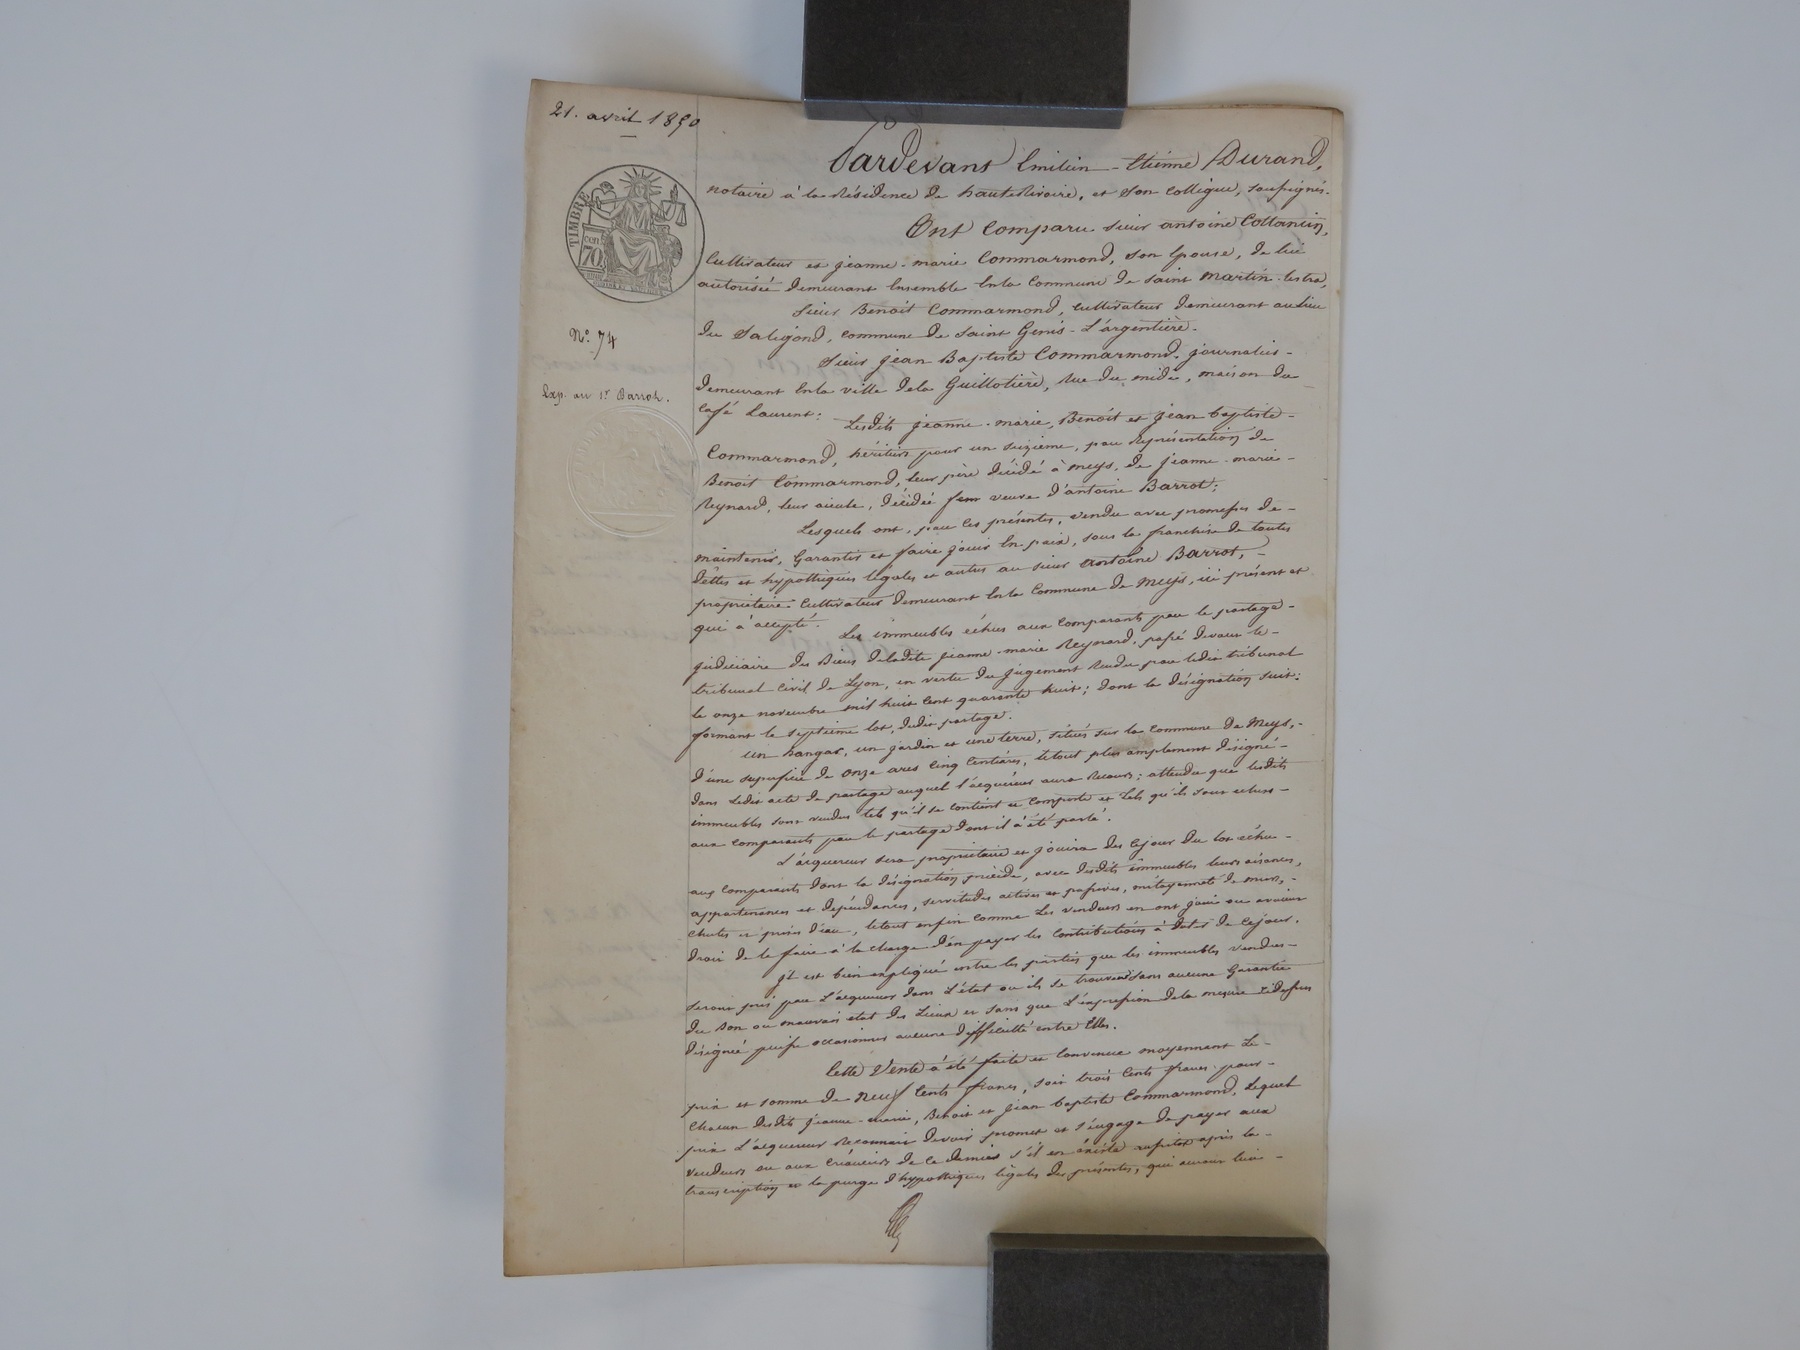 21. avril 1850
TIMBRE
70
N.o 74
Exp. au Sr Barrot.
Pardevant Emilien-Etienne Durand,
notaire à la Résidence de haute Rivoire, et son collègue, soussignés.
Ont Comparu sieur antoine Cottancin,
Cultivateur et jeanne-marie Commarmond, son Epouse, de lui
autorisée demeurant Ensemble En la Commune de Saint Martin-Lestra,
Sieur Benoit Commarmond, cultivateur demeurant au Lieu
du Saligond, commune de Saint Genis-L'argentière.
Sieur jean Baptiste Commarmond, journalier-
demeurant En la ville de la Guillotière, Rue du midi, maison du
Café Laurent: Lesdits jeanne-marie, Benoit et jean baptiste-
Commarmond, héritiers pour un seizième, par Représentation de
Benoit Commarmond, leur père décédé à meys, de jeanne-marie-
Reynard, leur aieule, décédée veuve d'antoine Barrot;
Lesquels ont, par ces présentes, vendu avec promesses de-
maintenir, Garantir et faire jouir En paix, sous la franchise de toutes
dettes et hypothèques légales et autres au sieur antoine Barrot,-
propriétaire Cultivateur demeurant En la Commune de Meys, ici présent et
qui à accepté. Les immeubles échus aux Comparants par le partage-
judiciaire des Biens de ladite jeanne-marie Reynard, passé devant le-
tribunal Civil de Lyon, en vertu du jugement Rendu par ledit tribunal
le onze novembre mil huit Cent quarante huit; dont la désignation suit:
formant le septième lot, dudit partage.
un hangar, un jardin et une terre, situés sur la Commune de Meys,-
d'une superficie de onze ares Cinq Centiares, le tout plus amplement désigné-
dans Ledit acte de partage auquel l'acquéreur aura Recours; attendu que lesdits
immeubles sont vendus tels qu'il se contient et comporte et tels qu'ils sont echus-
aux comparants par le partage dont il à été parlé.
L'acquereur sera propriétaire et jouira dès ce jour du lot échu-
aux Comparants dont la désignation précède, avec desdits immeubles leurs aisances,
appartenances et dépendances, servitudes actives et passives, mitoyenneté de murs,-
Chutes et prises d'eau, le tout enfin comme Les vendeurs en ont joui ou avaient
droit de le faire à la charge d'en payer les Contributions à dater de ce jour.
Il est bien expliqué entre les parties que les immeubles vendus-
seront pris par L'acquereur dans L'état ou ils se trouvent sans aucune Garantie
du Bon ou mauvais état des Lieux et sans que L'expression de la mesure ci dessus
désignée puisse occasionner aucune difficulté entre Elles.
Cette Vente à été faite et Convenue moyennant Le-
prix et somme de Neuf Cents francs, soit trois Cents francs pour-
Chacun desdits jeanne-marie, Benoit et jean baptiste Commarmond, Lequel
prix L'acquereur Reconnait devoir promet et s'engage de payer aux
vendeurs ou aux Créanciers de ce dernier s'il en éxiste aprés la-
transcription et la purge d'hypothèques légales des présentes, qui auront lieu-